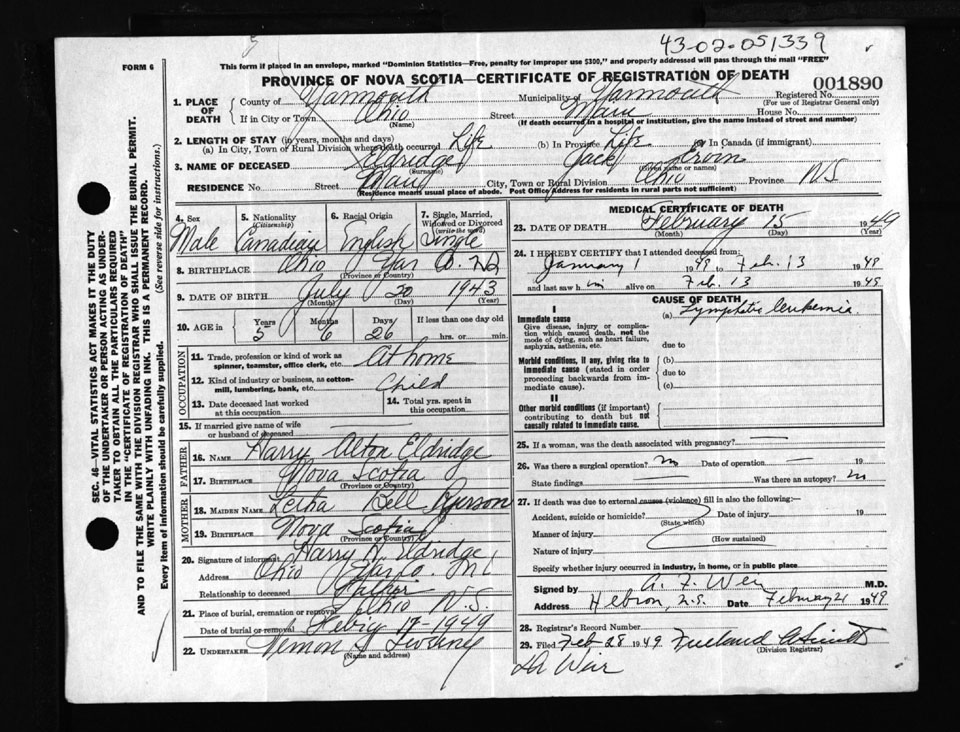 43-02-051339
FORM 6
This form if placed in an envelope, marked "Dominion Statistics—Free, penalty for improper use $300," and properly addressed will pass through the mail "FREE"
PROVINCE OF NOVA SCOTIA—CERTIFICATE OF REGISTRATION OF DEATH
001890
1. PLACE OF DEATH County of Yarmouth Municipality of Yarmouth Registered No.
(For use of Registrar General only)
If in City or Town Ohio (Name) Street Main House No.
(If death occurred in a hospital or institution, give the name instead of street and number)
2. LENGTH OF STAY (in years, months and days)
(a) In City, Town or Rural Division where death occurred Life (b) In Province Life or In Canada (if immigrant)
3. NAME OF DECEASED Eldridge (Surname) Jack Ervin (Given name or names)
RESIDENCE No. Street Main City, Town or Rural Division Ohio Province NS
(Residence means usual place of abode. Post Office Address for residents in rural parts not sufficient)
4. Sex Male
5. Nationality (Citizenship) Canadian
6. Racial Origin English
7. Single, Married, Widowed or Divorced (write the word) Single
8. BIRTHPLACE Ohio Yar (Province or Country)
9. DATE OF BIRTH July (Month) 20 (Day) 1943 (Year)
10. AGE in Years 5 Months 6 Days 26 If less than one day old hrs. or min.
OCCUPATION
11. Trade, profession or kind of work as spinner, teamster, office clerk, etc. At home
12. Kind of industry or business, as cotton-mill, lumbering, bank, etc. Child
13. Date deceased last worked at this occupation
14. Total yrs. spent in this occupation
15. If married give name of wife or husband of deceased
FATHER
16. Name Harry Alton Eldridge
17. Birthplace Nova Scotia (Province or Country)
MOTHER
18. Maiden Name Bell
19. Birthplace Nova Scotia (Province or Country)
20. Signature of informant Harry A. Eldridge
Address Ohio Yar Co.
Relationship to deceased Father
21. Place of burial, cremation or removal Ohio N.S.
Date of burial or removal 17-1949
22. UNDERTAKER (Name and address)
MEDICAL CERTIFICATE OF DEATH
23. DATE OF DEATH February (Month) 15 (Day) 1949 (Year)
24. I HEREBY CERTIFY that I attended deceased from:
January 1 1949 to Feb. 13 1949
and last saw him alive on Feb. 13 1949
CAUSE OF DEATH
I
Immediate cause
Give disease, injury or complication which caused death, not the mode of dying, such as heart failure, asphyxia, asthenia, etc.
(a) Lymphatic leukemia
due to
Morbid conditions, if any, giving rise to immediate cause (stated in order proceeding backwards from immediate cause).
(b)
due to
(c)
II
Other morbid conditions (if important) contributing to death but not causally related to immediate cause.
25. If a woman, was the death associated with pregnancy? —
26. Was there a surgical operation? no Date of operation — 19
State findings Was there an autopsy? no
27. If death was due to external causes (violence) fill in also the following:—
Accident, suicide or homicide? (State which) Date of injury 19
Manner of injury (How sustained)
Nature of injury
Specify whether injury occurred in industry, in home, or in public place
Signed by A. F. Weir M.D.
Address Hebron, N.S. Date February 21 1949
28. Registrar's Record Number
29. Filed Feb 28 1949 (Division Registrar)
Weir
SEC. 46—VITAL STATISTICS ACT MAKES IT THE DUTY
OF THE UNDERTAKER OR PERSON ACTING AS UNDER-
TAKER TO OBTAIN ALL THE PARTICULARS REQUIRED
IN THE "CERTIFICATE OF REGISTRATION OF DEATH"
AND TO FILE THE SAME WITH THE DIVISION REGISTRAR WHO SHALL ISSUE THE BURIAL PERMIT.
WRITE PLAINLY WITH UNFADING INK. THIS IS A PERMANENT RECORD.
Every item of information should be carefully supplied. (See reverse side for instructions.)